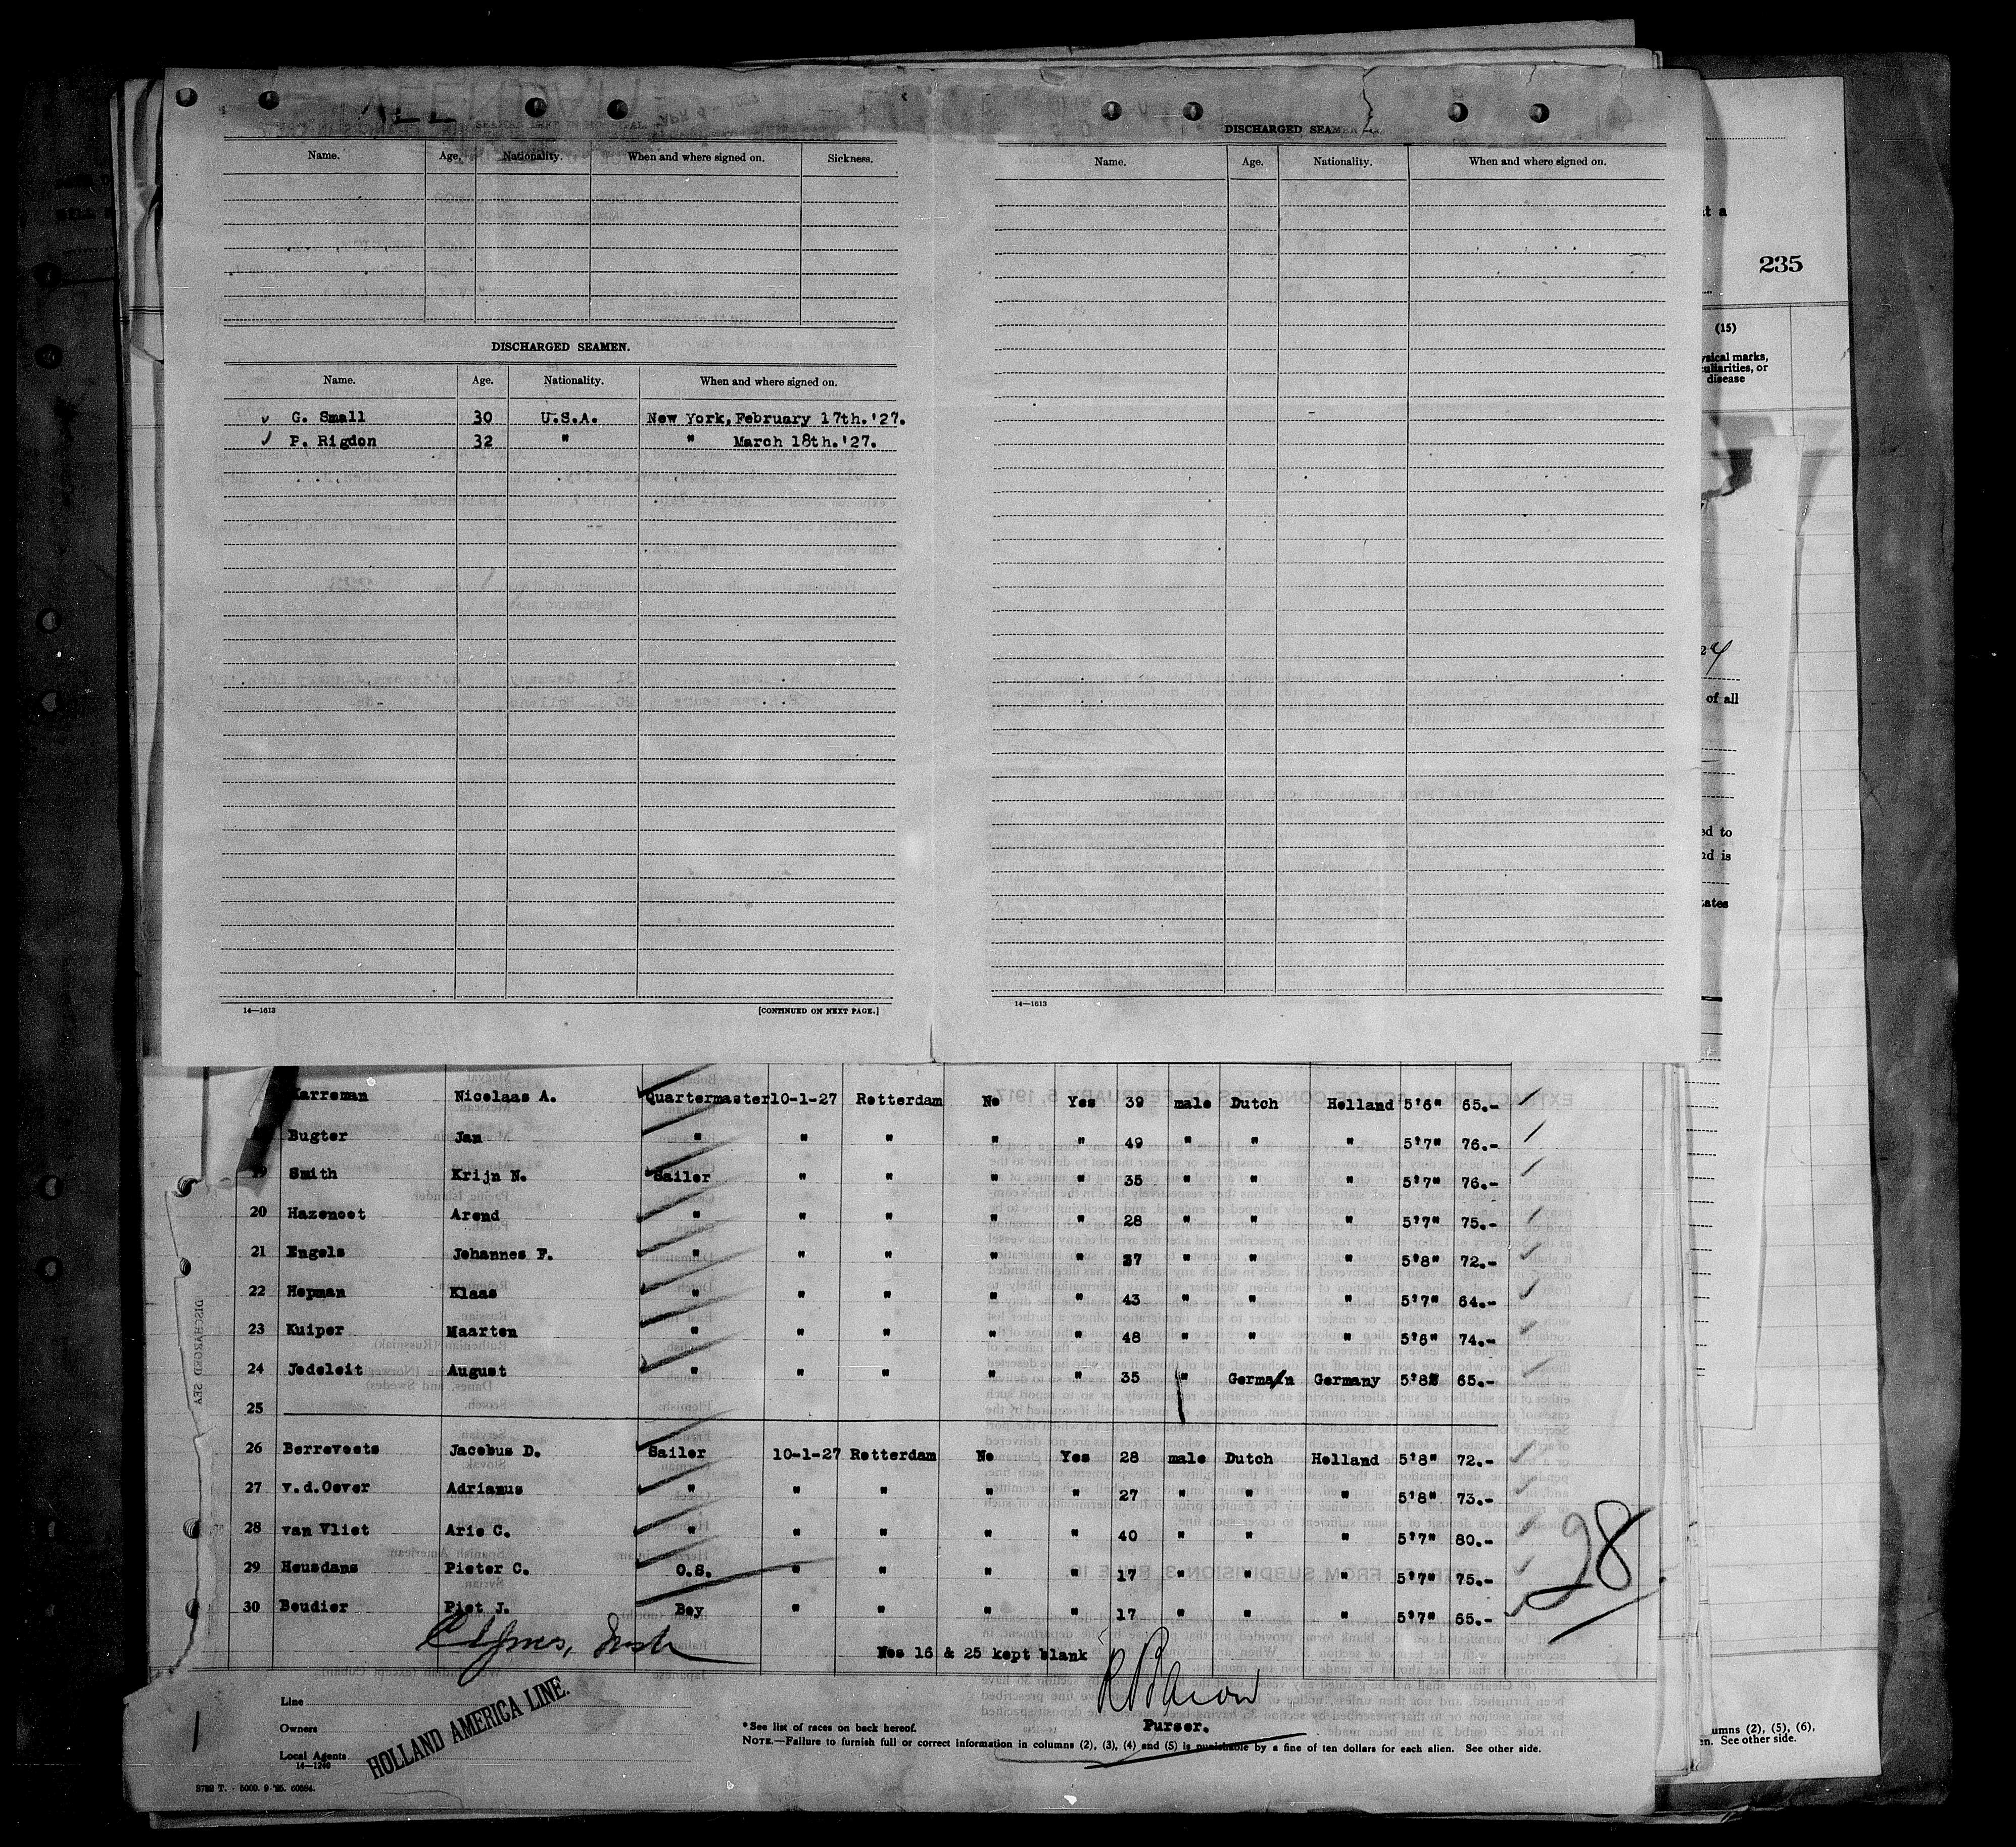 SEAMEN LEFT IN HOSPITAL.
Name. Age. Nationality. When and where signed on. Sickness.
DISCHARGED SEAMEN.
Name. Age. Nationality. When and where signed on.
G. Small 30 U.S.A. New York, February 17th.'27.
P. Rigdon 32 " " March 18th.'27.
14—1613 [CONTINUED ON NEXT PAGE.]
DISCHARGED SEAMEN
Name. Age. Nationality. When and where signed on.
14—1613
t a
235
(15)
ysical marks,
culiarities, or
disease
of all
ed to
nd is
tates
Karreman Nicolaas A. Quartermaster 10-1-27 Rotterdam No Yes 39 male Dutch Holland 5'6" 65.-
Bugter Jan " " " " " 49 " " " 5'7" 76.-
19 Smith Krijn N. Sailor " " " " 35 " " " 5'7" 76.-
20 Hazenoot Arend " " " " " 28 " " " 5'7" 75.-
21 Engels Johannes F. " " " " " 37 " " " 5'8" 72.-
22 Hopman Klaas " " " " " 43 " " " 5'7" 64.-
23 Kuiper Maarten " " " " " 48 " " " 5'6" 74.-
24 Jedeleit August " " " " " 35 " German Germany 5'8" 65.-
25
26 Berrevoets Jacobus D. Sailor 10-1-27 Rotterdam No Yes 28 male Dutch Holland 5'8" 72.-
27 v.d.Oever Adrianus " " " " " 27 " " " 5'8" 73.-
28 van Vliet Arie C. " " " " " 40 " " " 5'7" 80.-
29 Heusdans Pieter C. O.S. " " " " 17 " " " 5'7" 75.-
30 Boudier Piet J. Boy " " " " 17 " " " 5'7" 65.-
28
Nos 16 & 25 kept blank
DISCHARGED SEA
Line
Owners
Local Agents
14—1240
HOLLAND AMERICA LINE.
* See list of races on back hereof.
Purser.
NOTE.—Failure to furnish full or correct information in columns (2), (3), (4) and (5) is punishable by a fine of ten dollars for each alien. See other side.
3722 T. - 5000. 9-'25. 60584.
umns (2), (5), (6),
en. See other side.